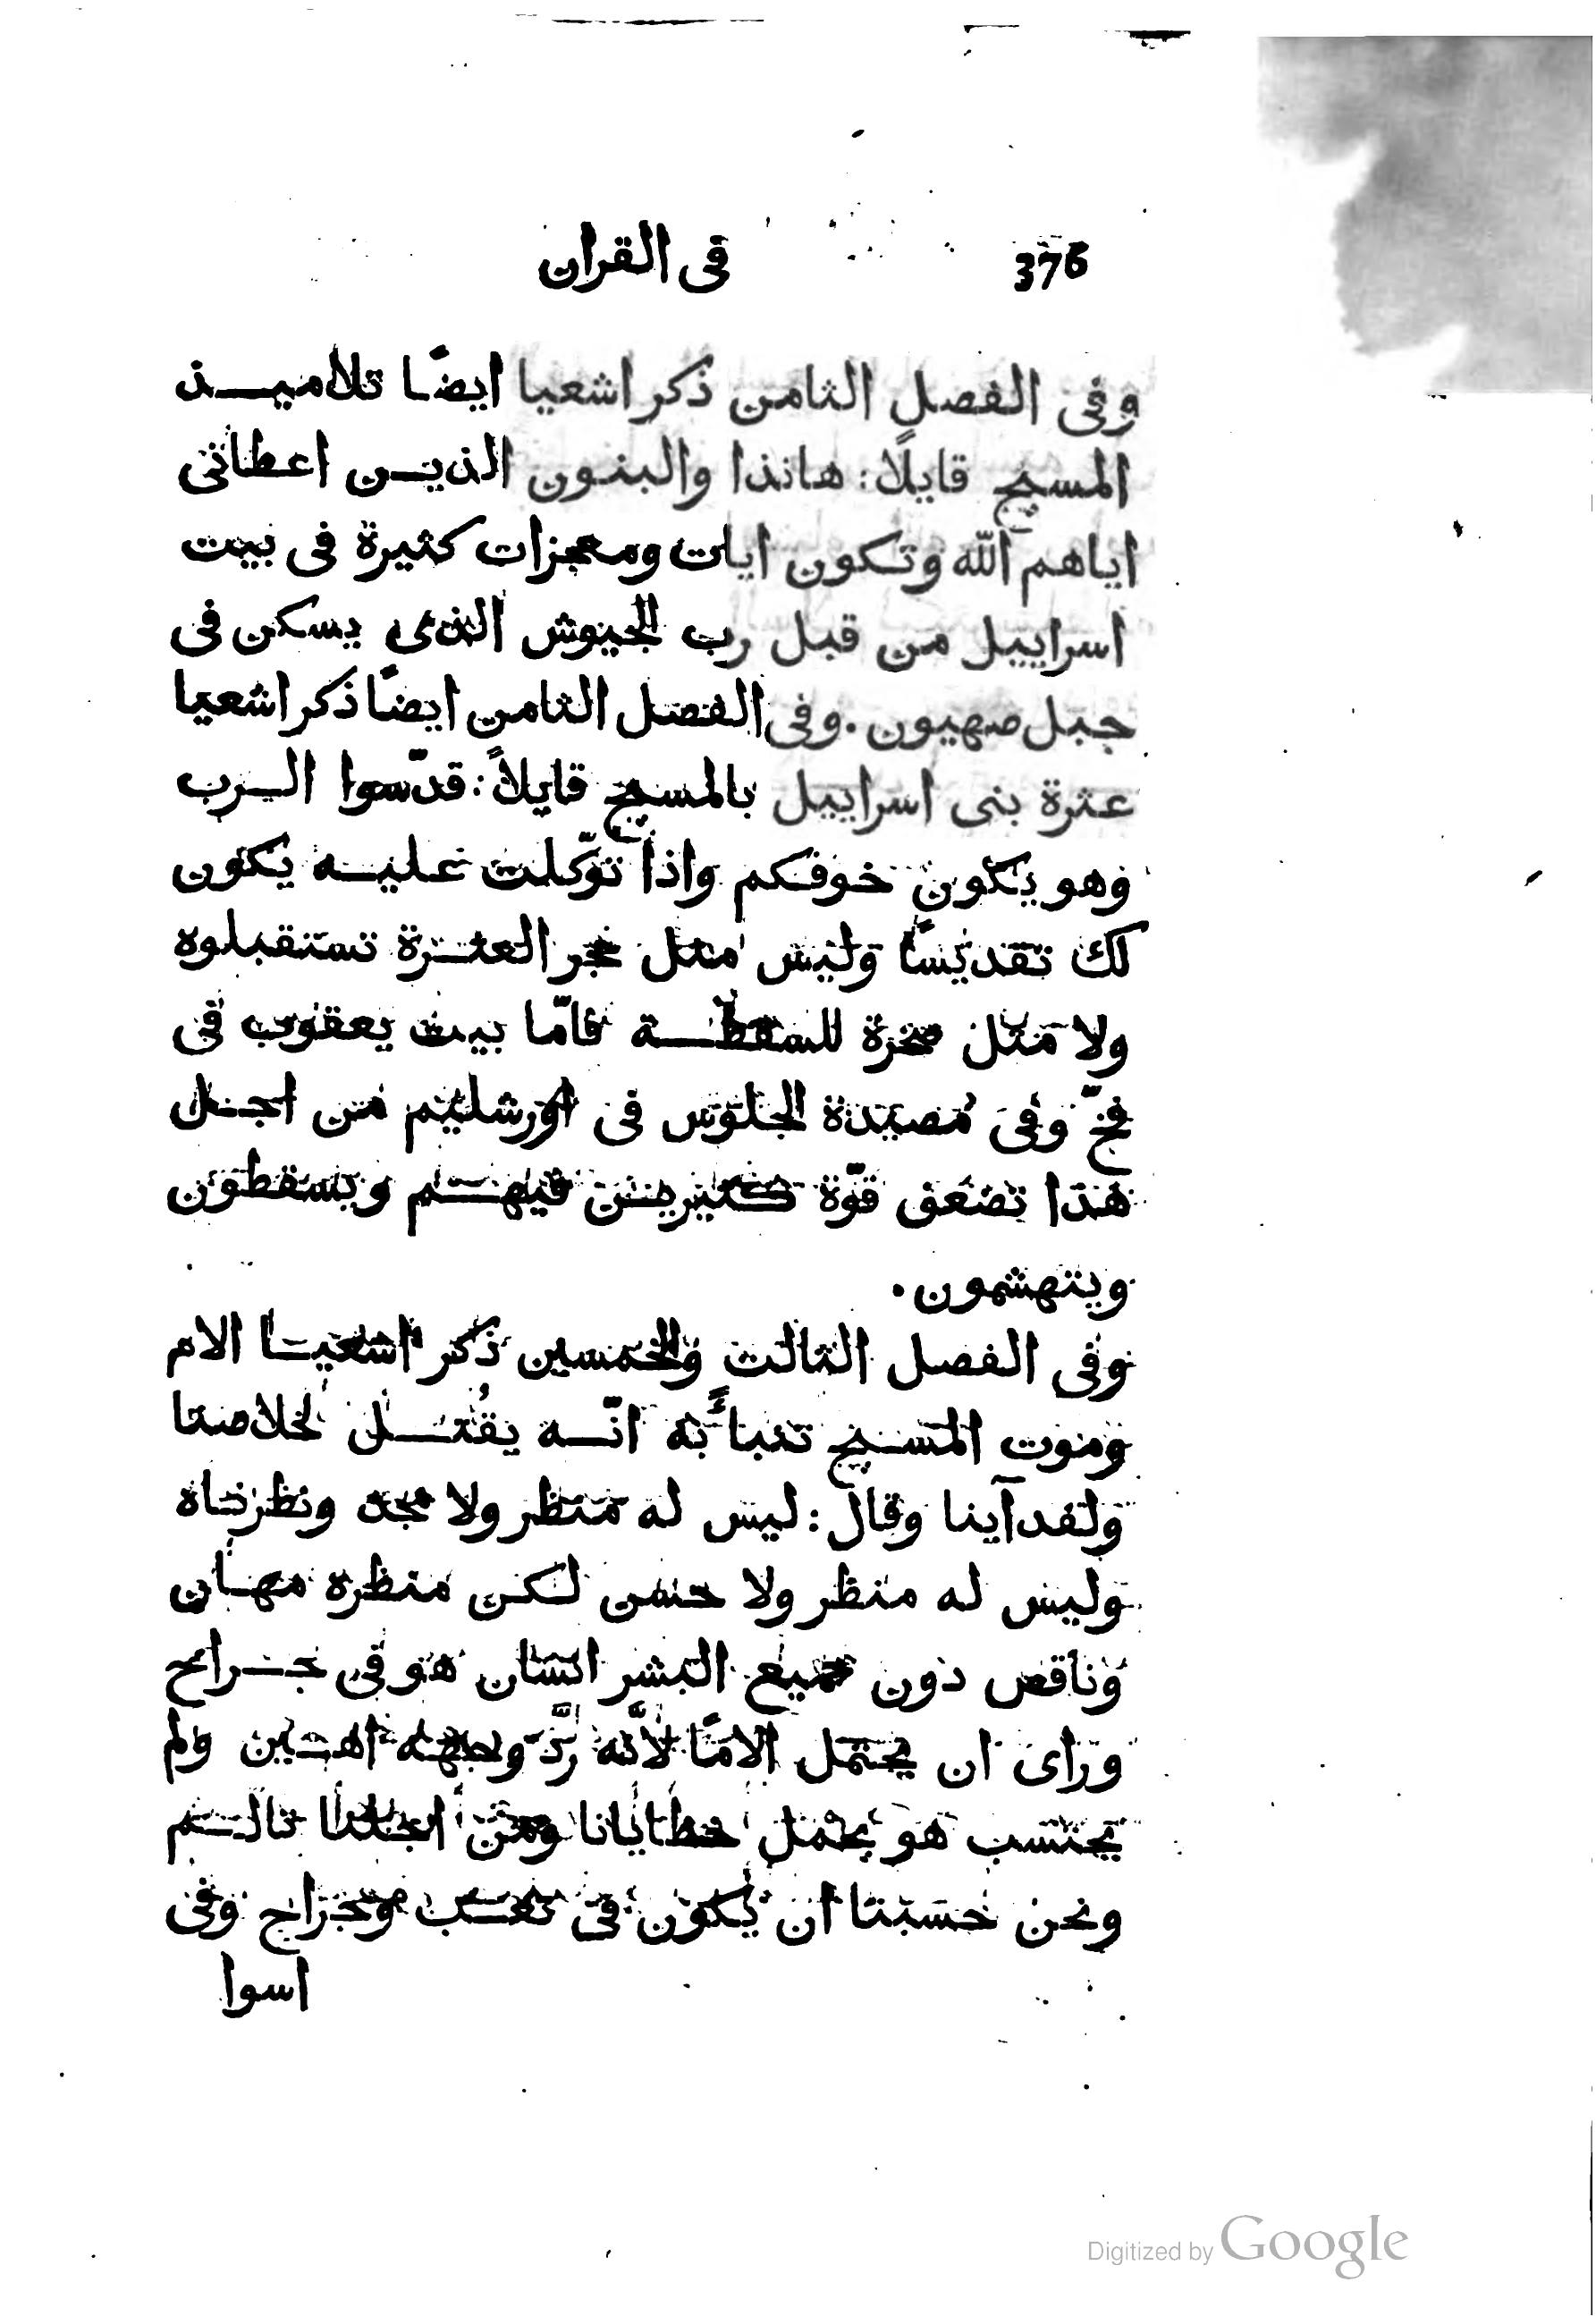 376 فى القران
وفى الفصل الثامن ذكر اشعيا ايضًا تلاميذ
المسيح قايلًا: هانذا والبنون الذين اعطانى
اياهم الله وتكون ايات ومعجزات كثيرة فى بيت
اسراييل من قبل رب الجيوش الذى يسكن فى
جبل صهيون. وفى الفصل الثامن ايضًا ذكر اشعيا
عثرة بنى اسراييل بالمسيح قايلًا: قدّسوا الرب
وهو يكون خوفكم واذا توّكلت عليه يكون
لك تقديسًا وليس مثل حجر العثرة تستقبلوه
ولا مثل صخرة للسقطة فامّا بيت يعقوب فى
فخّ وفى مصيدة الجلوس فى اورشليم من اجل
هذا تضعف قوّة كثيرين فيهم ويسقطون
ويتهشمون.
وفى الفصل الثالث والخمسين ذكر اشعيا الام
وموت المسيح تنبأ به انّه يقُتل لخلاصنا
ولفدآينا وقال: ليس له منظر ولا مجد ونظرناه
وليس له منظر ولا حسن لكن منظره مهان
وناقص دون جميع البشر انسان هو فى جراح
وراى ان يحتمل الامًا لانّه ردَّ وجهه اهين ولم
يحتسب هو يحمل خطايانا ومن اجلنا تالم
ونحن حسبنا ان يكون فى تعب وجراح وفى
اسوا
Digitized by Google